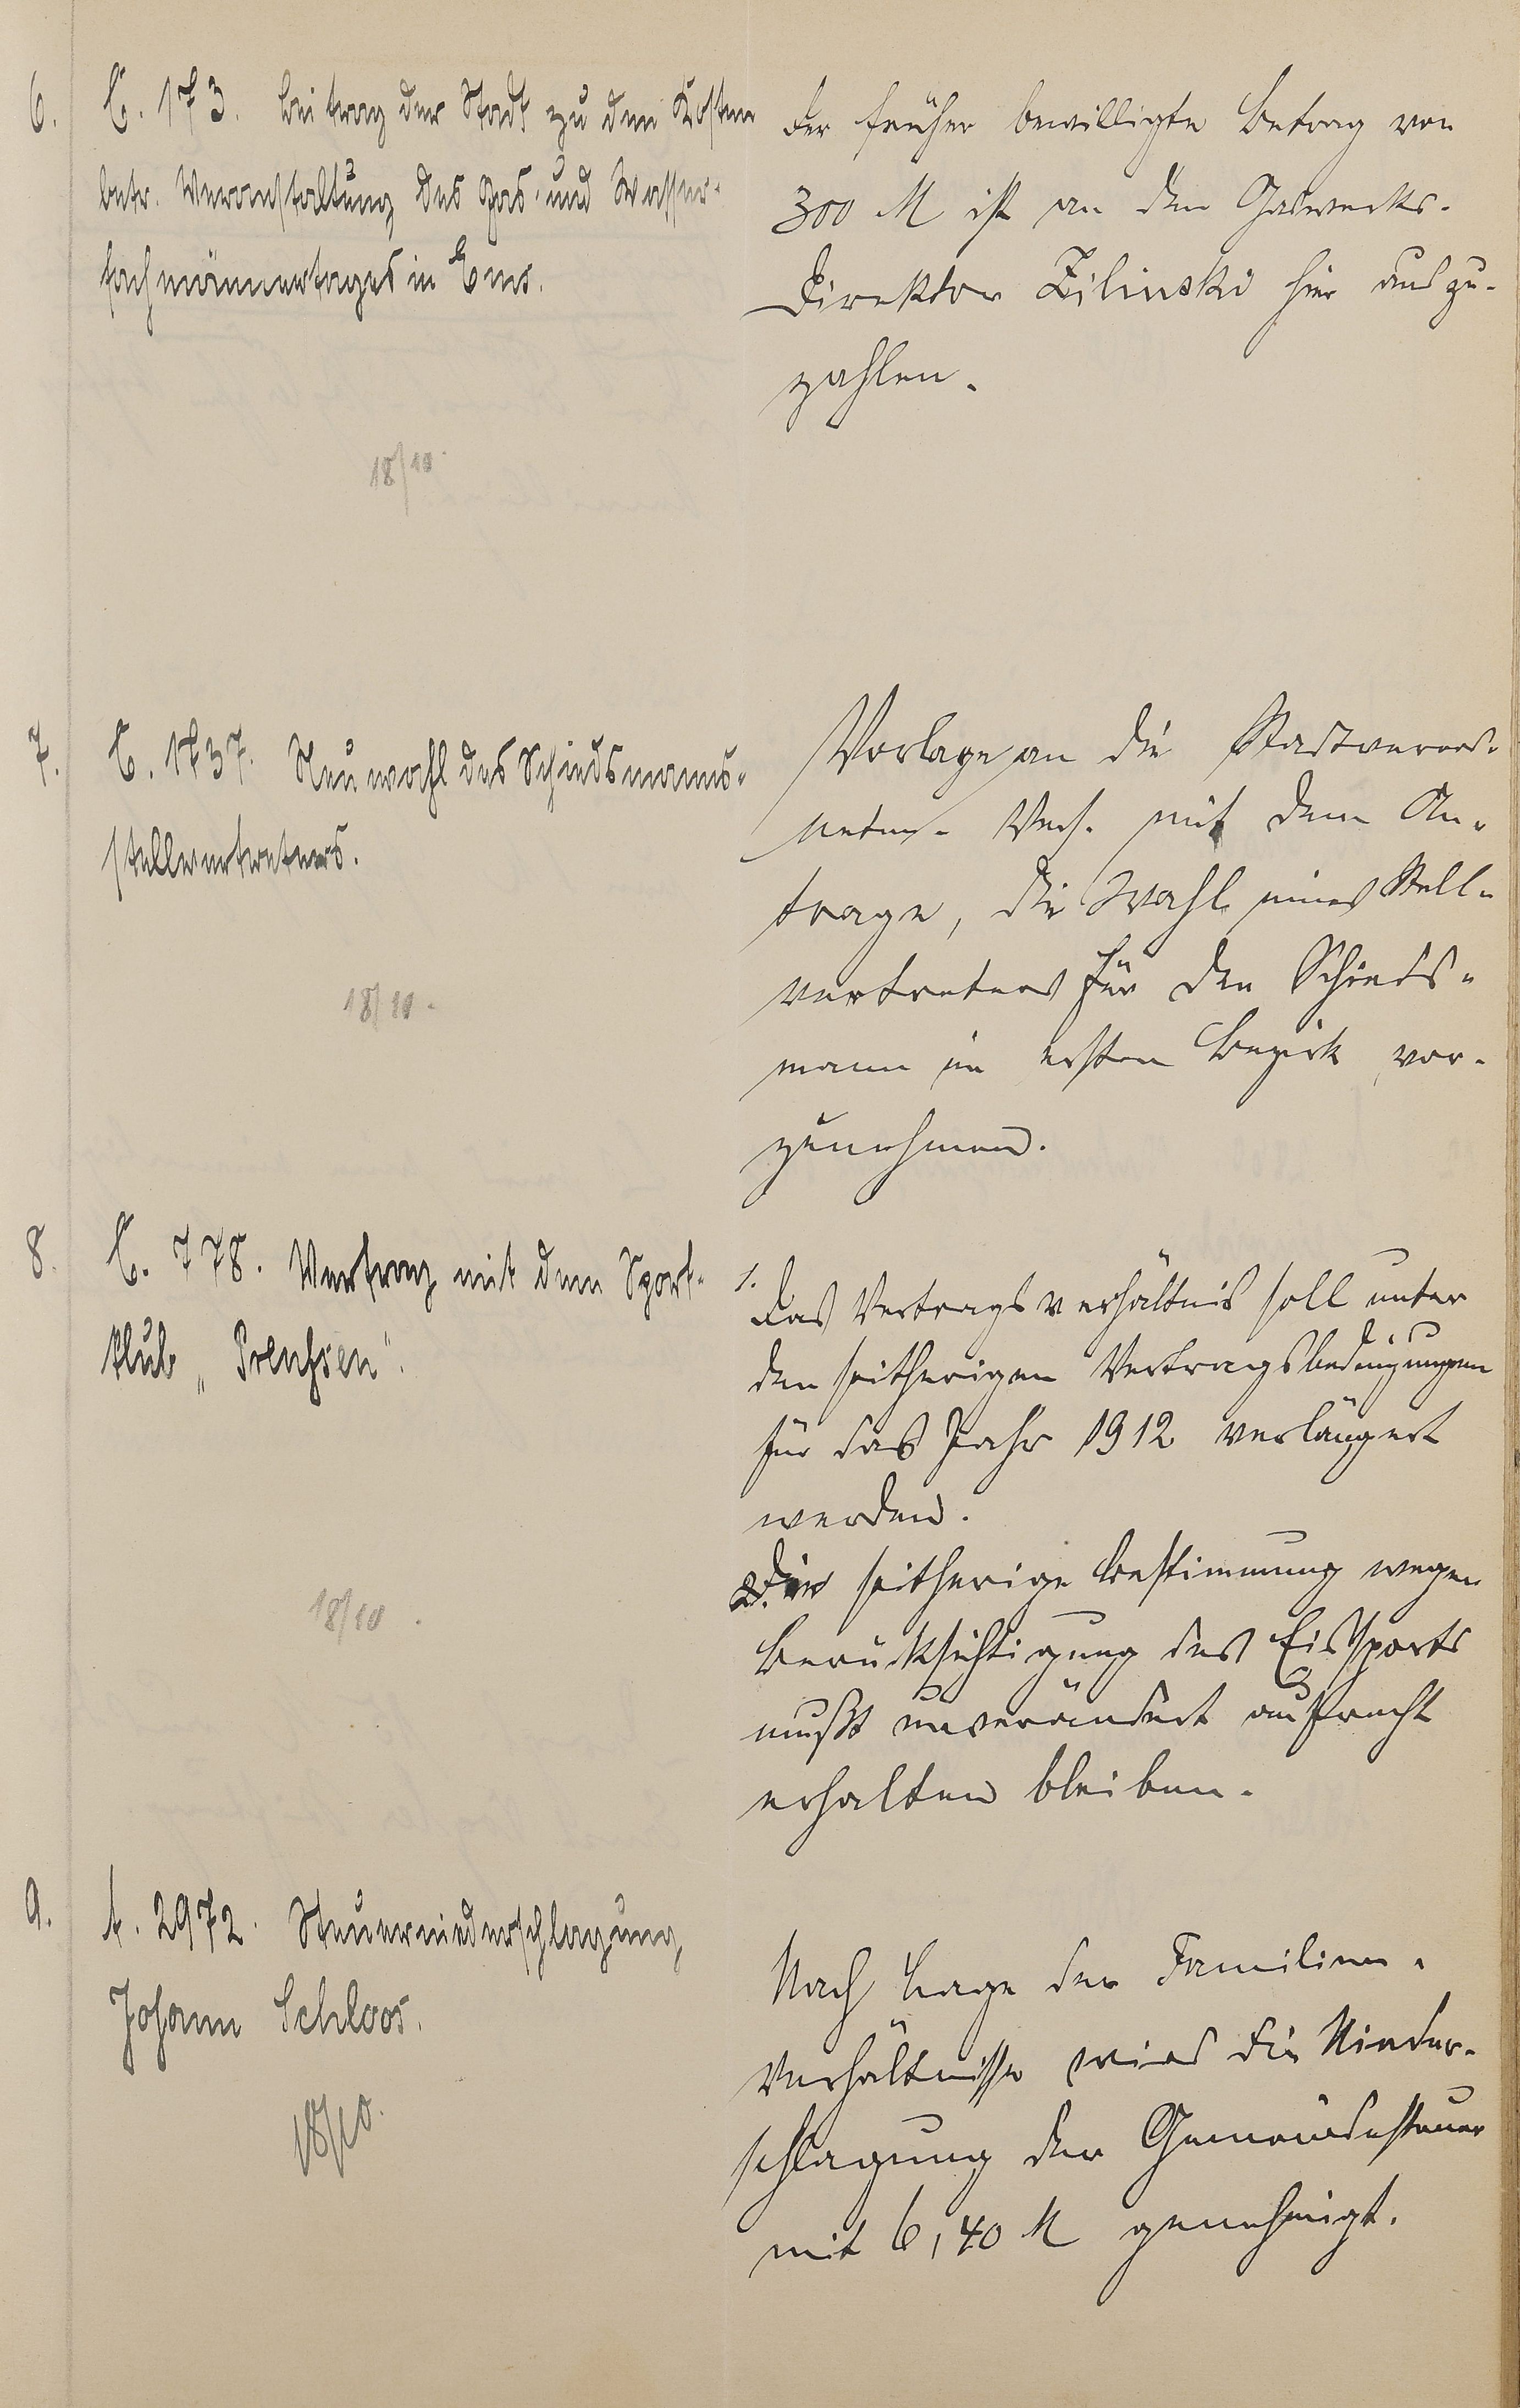 6.
C. 173. Beitrag der Stadt zu den Kosten
betr. Veranstaltung des Gas- und Wasser-
fachmännertages in Ems.
18/10.
Der früher bewilligte Betrag von
300 M ist an den Gaswerks-
Direktor Zilinski hier auszu-
zahlen.
7.
C. 1737. Neuwahl des Schiedsmanns-
stellvertreters.
18/10.
Vorlage an die Stadtverord-
neten- Vers. mit dem An-
trage, die Wahl eines Stell-
vertreters für den Schieds-
mann im ersten Bezirk vor-
zunehmen.
8.
C. 778. Vertrag mit dem Sport-
klub „Preußen".
18/10.
1.
Das Vertragsverhältnis soll unter
den seitherigen Vertragsbedingungen
für das Jahr 1912 verlängert
werden.
2. Die seitherige Bestimmung wegen
Berücksichtigung des Eissports
mußt unverändert aufrecht
erhalten bleiben.
9.
t. 2972. Steuerniederschlagung
Johann Schloos.
18/10.
Nach Lage der Familien-
verhältnisse wird die Nieder-
schlagung der Gemeindesteuer
mit 6,40 M genehmigt.